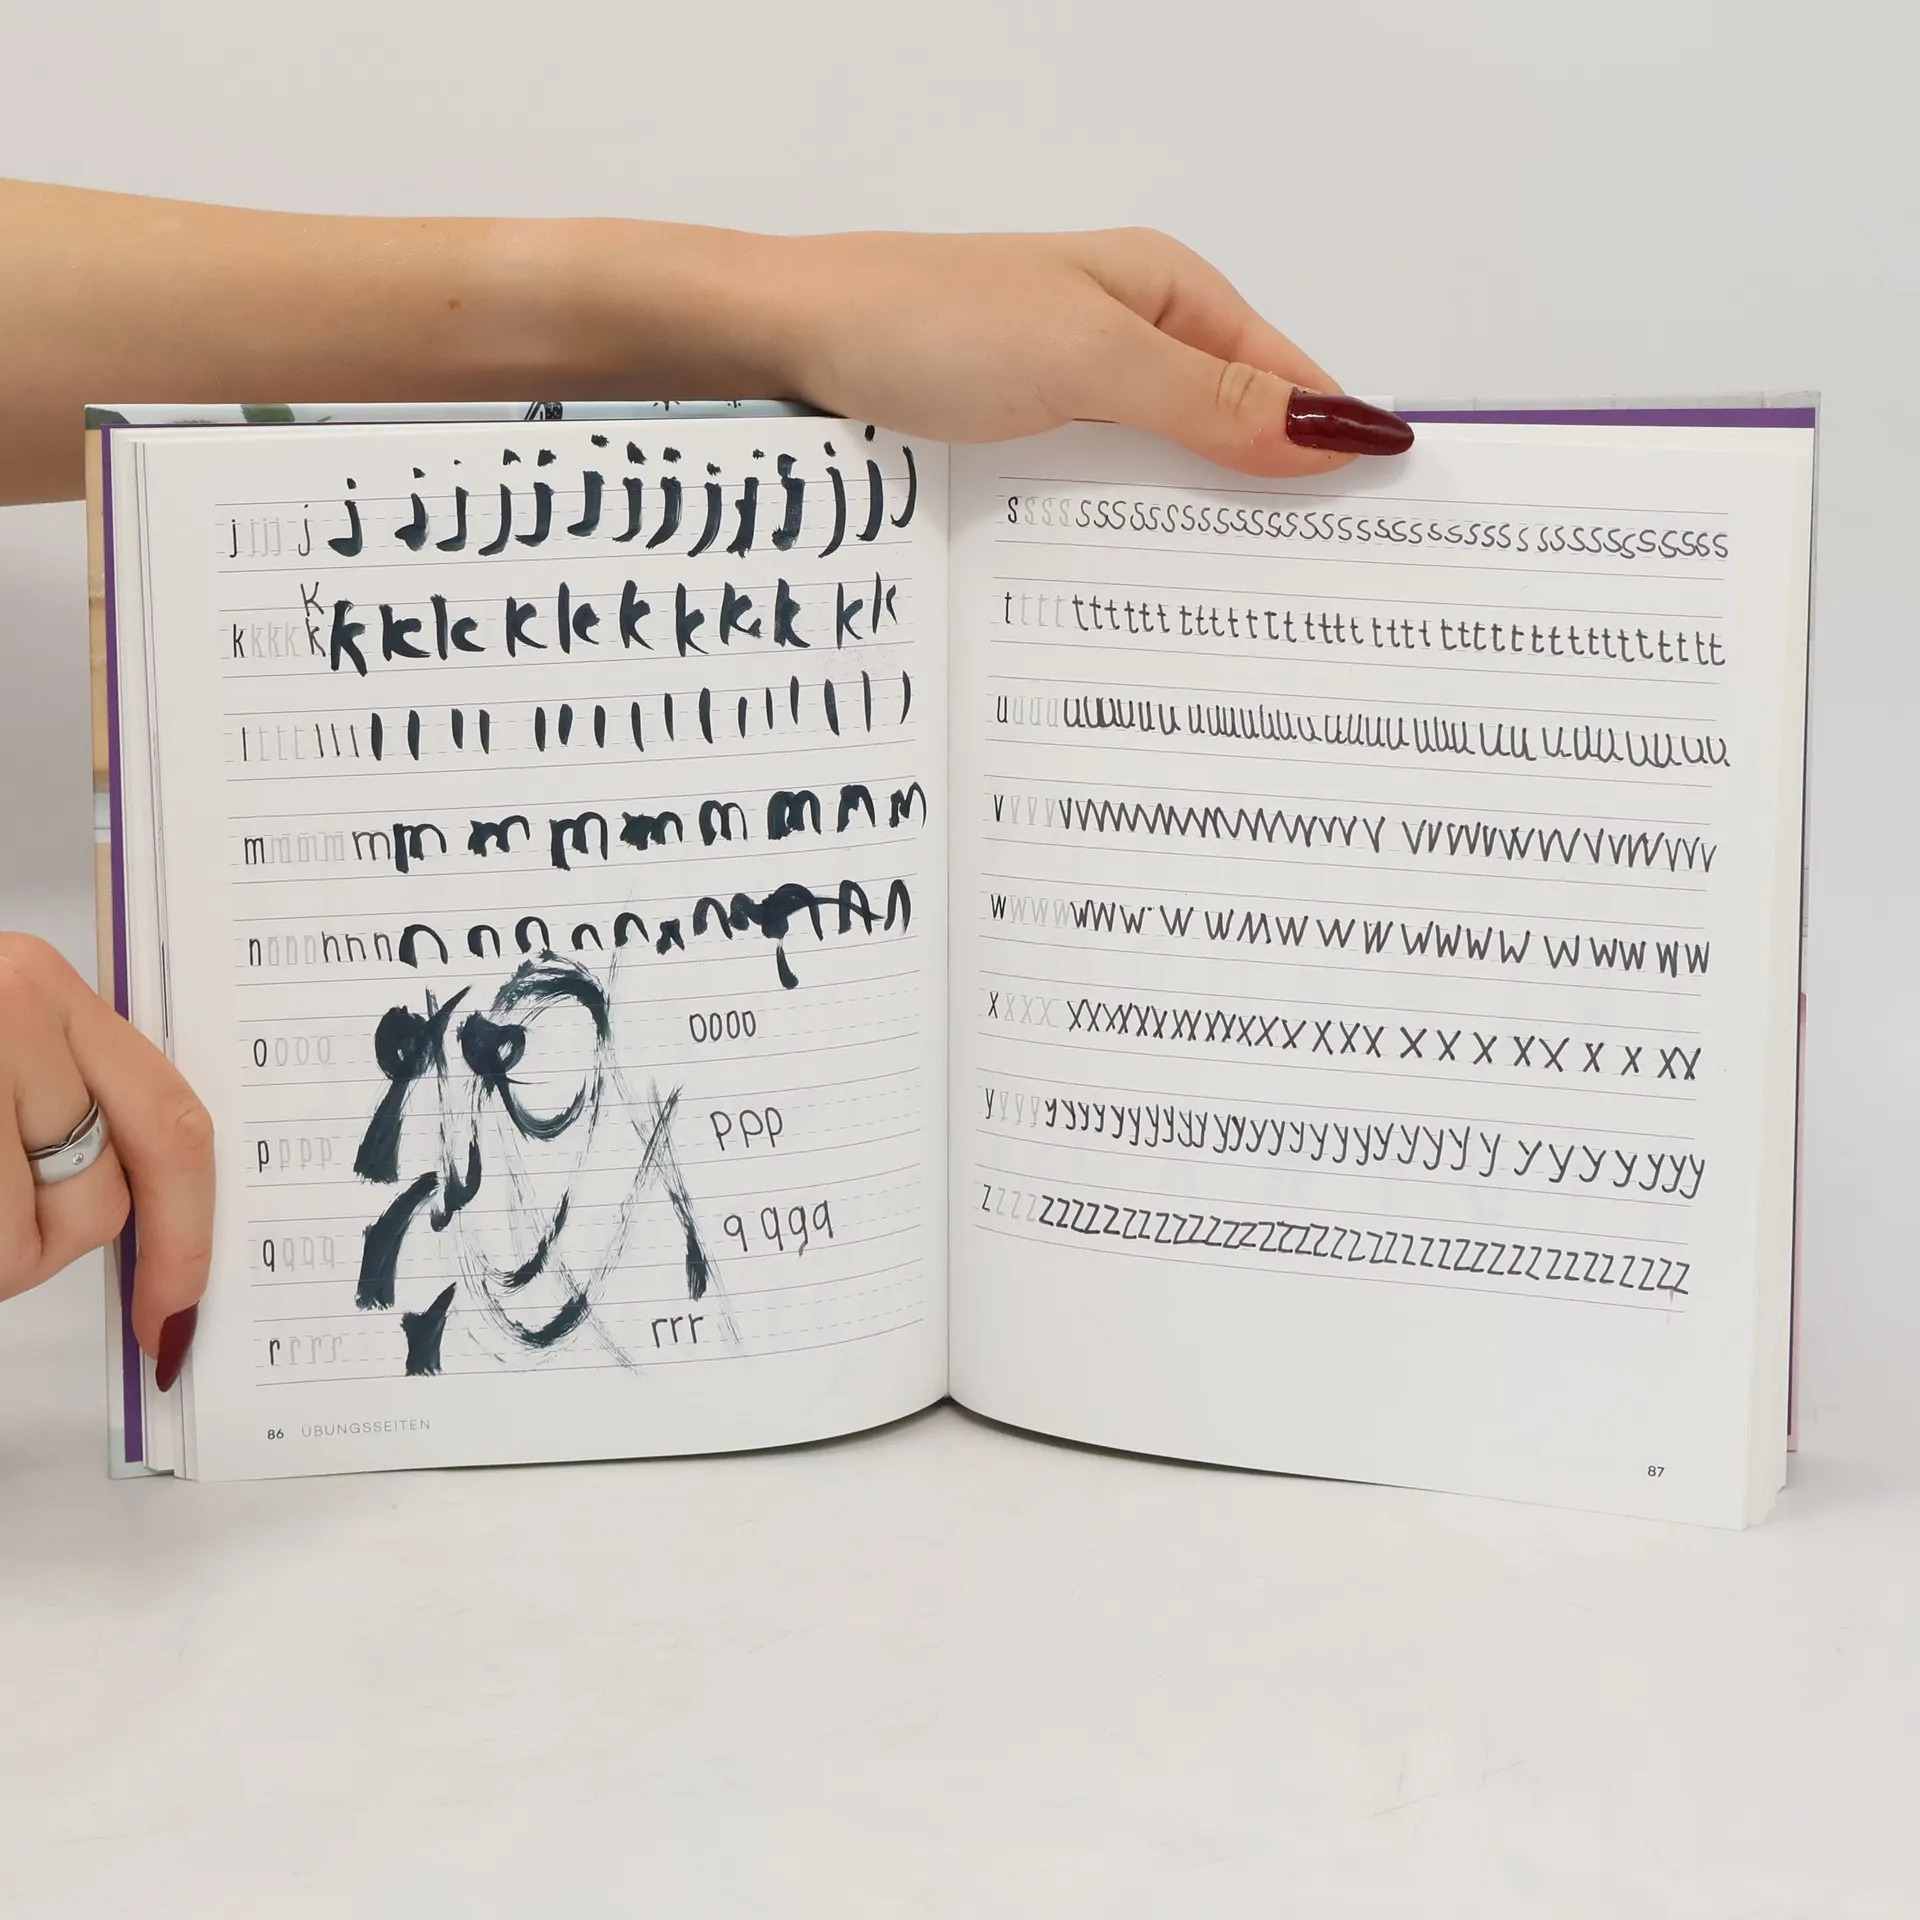 j j j j j j j j j j j j j j j j j j j
K
k k k k k k k k k k k k k k k k
l l l l l l l l l l l l l l l l l l l l l l l
m m m m m m m m m m m m m
n n n n n n n n n n n n n n
o o o o oooo
p p p p ppp
q q q q qqqq
r r r r rrr
86 ÜBUNGSSEITEN
s s s s sssssssssssssssssssssssssssssssssssss
t t t t tttttt ttttttt tttt tttt tttttttttttttttt
u u u u uuuuuu uuuuuuuu uuuuu uuuu uuu uuuuuuuu
v v v v vvvvvvvvvvvvvvvvvv vvvvvvvvvvvvvvvv
w w w w wwww w w w w w w w w w w w w w w w w w
x x x x xxxxxxxxxxxxxx x x x x x x x x x x x x x
y y y y yyyyyyyyyyyyyyyyyyyyyyyy y y y y y y y y
z z z z zzzzzzzzzzzzzzzzzzzzzzzzzzzzzzzzzzzz
87